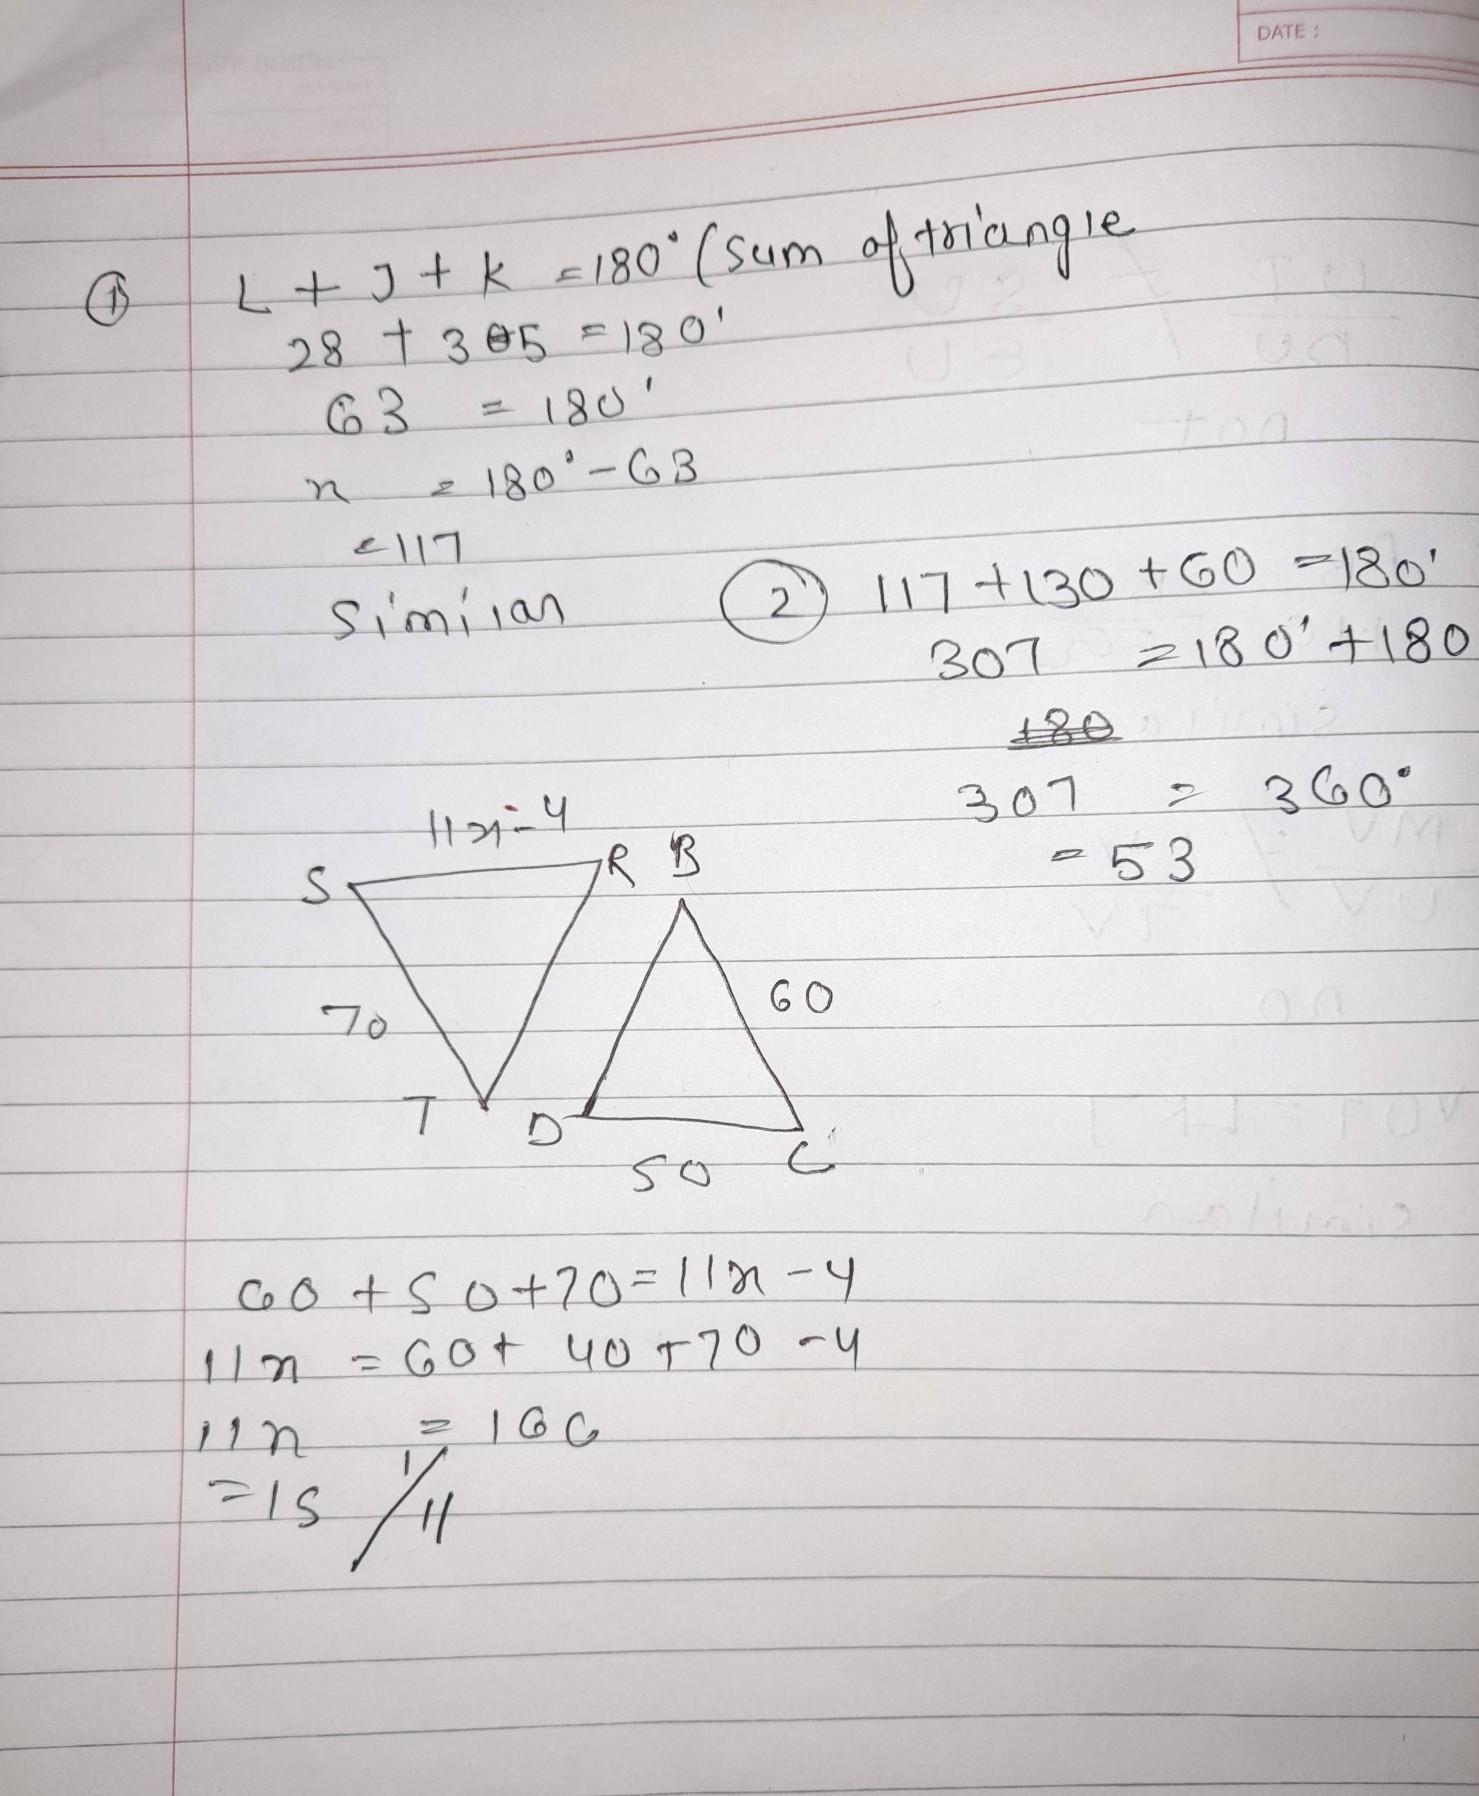 DATE :
① L + J + K = 180° (sum of triangle
28 + 35 = 180°
63 = 180°
x = 180° - 63
= 117
similar
② 117 + 130 + 60 = 180°
307 = 180° + 180
180
307 = 360°
= 53
11x - 4
S R B
70 60
T D C
50
60 + 50 + 70 = 11x - 4
11x = 60 + 40 + 70 - 4
11x = 166
= 15 / 11